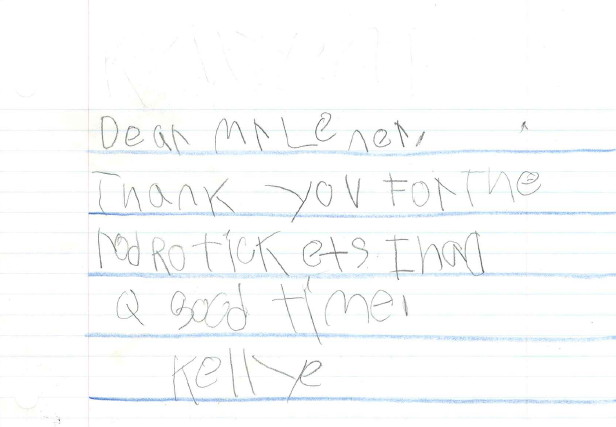 Dear Mr Lener,
Thank you For The
rodRo tick ets I had
a good time,
Kellye